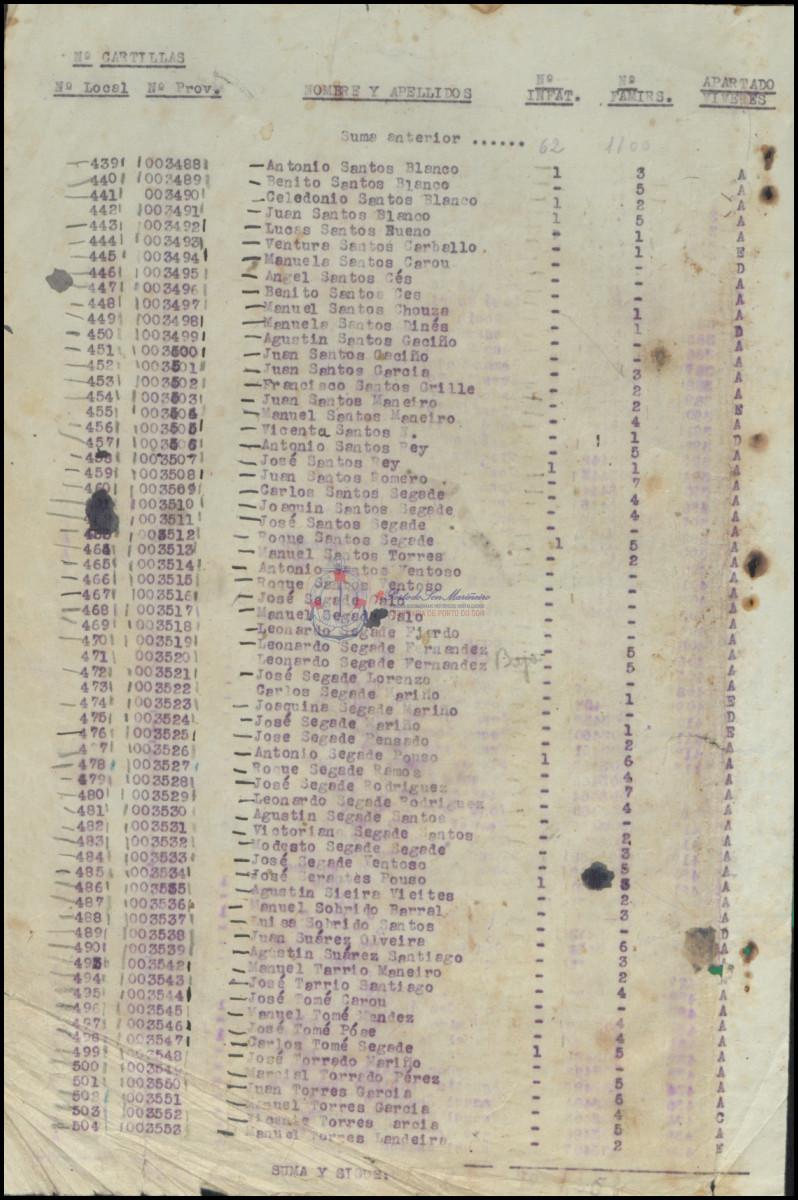 Nº CARTILLAS
Nº Local Nº Prov. NOMBRE Y APELLIDOS Nº INFAT. Nº FAMIRS. APARTADO VIVERES
Suma anterior ...... 62 1100
439 003488 Antonio Santos Blanco 1 3 A
440 003489 Benito Santos Blanco - 5 A
441 003490 Celedonio Santos Blanco 1 2 A
442 003491 Juan Santos Blanco 1 5 A
443 003492 Lucas Santos Bueno - 1 A
444 003493 Ventura Santos Carballo. - 1 E
445 003494 Manuela Santos Carou - - D
446 003495 Angel Santos Cés - - A
447 003496 Benito Santos Ces - - A
448 003497 Manuel Santos Chouza - 1 A
449 003498 Manuela Santos Dinés - 1 D
450 003499 Agustin Santos Gaciño - - A
451 003500 Juan Santos Gaciño - - A
452 003501 Juan Santos Garcia - 3 A
453 003502 Francisco Santos Grille - 2 A
454 003503 Juan Santos Maneiro - 2 E
455 003504 Manuel Santos Maneiro - 4 A
456 003505 Vicenta Santos N. - 1 D
457 003506 Antonio Santos Rey - 5 A
458 003507 José Santos Rey 1 1 A
459 003508 Juan Santos Romero - 7 A
460 003509 Carlos Santos Segade - 4 A
003510 Joaquin Santos Segade - 4 A
003511 José Santos Segade - - A
003512 Roque Santos Segade 1 5 A
464 003513 Manuel Santos Torres - 2 A
465 003514 Antonio Santos Ventoso - - A
466 003515 Roque Santos Ventoso - - A
467 003516 José Segade Calo - - A
468 003517 Manuel Segade Calo - - A
469 003518 Leonardo Segade Fierdo - - A
470 003519 Leonardo Segade Fernandez - 5 A
471 003520 Leonardo Segade Fernandez Baja - 5 A
472 003521 José Segade Lorenzo - - A
473 003522 Carlos Segade Mariño - 1 E
474 003523 Joaquina Segade Mariño - - D
475 003524 José Segade Mariño - 1 E
476 003525 Jose Segade Pensado - 2 A
477 003526 Antonio Segade Pouso 1 6 A
478 003527 Roque Segade Ramos - 4 A
479 003528 José Segade Rodriguez - 7 A
480 003529 Leonardo Segade Rodriguez - 4 A
481 003530 Agustin Segade Santos - - A
482 003531 Victoriana Segade Santos - 2 A
483 003532 Modesto Segade Segade - 3 A
484 003533 José Segade Ventoso - 5 A
485 003534 José Serantes Pouso 1 3 A
486 003535 Agustin Sieira Vieites - 2 A
487 003536 Manuel Sobrido Barral - 3 A
488 003537 Luisa Sobrido Santos - - D
489 003538 Juan Suárez Olveira - 6 A
490 003539 Agustin Suárez Santiago - 3 A
493 003542 Manuel Tarrio Maneiro - 2 A
494 003543 José Tarrio Santiago - 4 A
495 003544 José Tomé Carou - - A
496 003545 Manuel Tomé Mendez - 4 A
497 003546 José Tomé Póse - 4 A
498 003547 Carlos Tomé Segade 1 5 A
499 003548 José Torrado Mariño - - A
500 003549 Marcial Torrado Pérez - 5 A
501 003550 Juan Torres Garcia - 6 A
502 003551 Manuel Torres Garcia - 4 C
503 003552 Vicente Torres Garcia - 5 A
504 003553 Manuel Torres Landeira - 2 E
SUMA Y SIGUE.
Porto do Son Mariñeiro